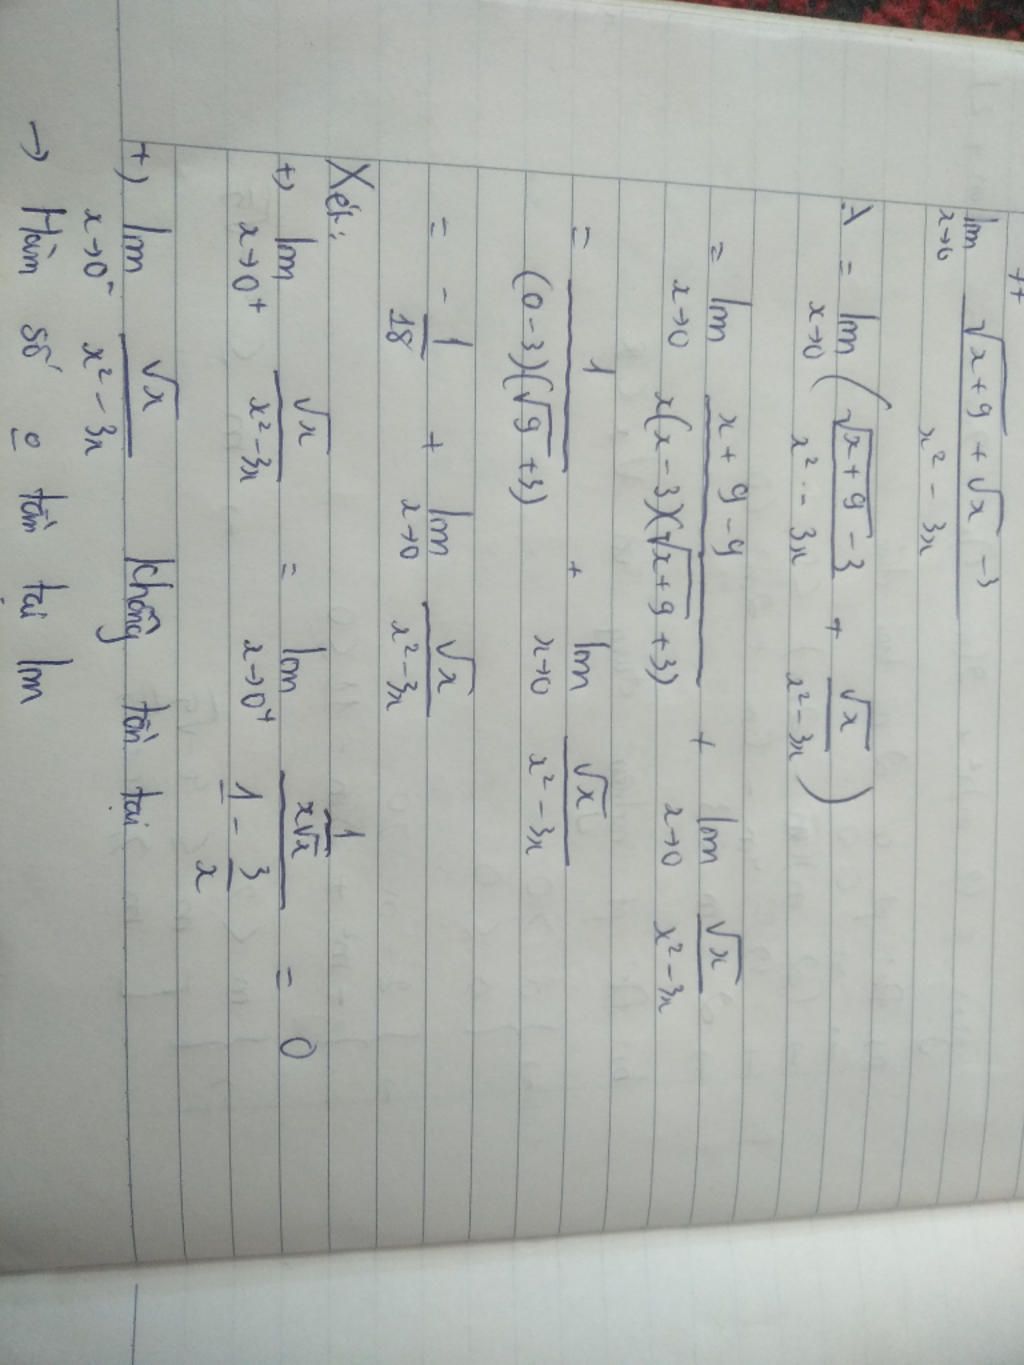 lim x→0 (√(x+9) + √x - 3)/(x² - 3x)
A = lim x→0 ( (√(x+9) - 3)/(x² - 3x) + √x/(x² - 3x) )
= lim x→0 (x + 9 - 9)/(x(x - 3)(√(x+9) + 3)) + lim x→0 √x/(x² - 3x)
= 1/((0 - 3)(√9 + 3)) + lim x→0 √x/(x² - 3x)
= - 1/18 + lim x→0 √x/(x² - 3x)
Xét:
+) lim x→0⁺ √x/(x² - 3x) = lim x→0⁺ (1/(x√x))/(1 - 3/x) = 0
+) lim x→0⁻ √x/(x² - 3x) không tồn tại
→ Hàm số o tồn tại lim